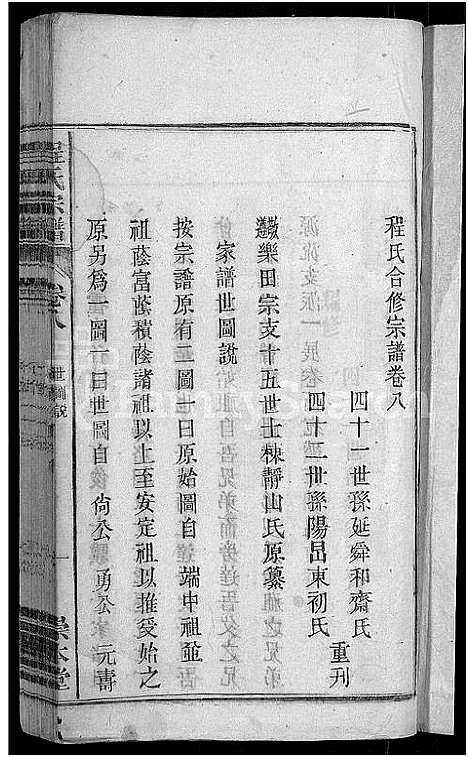 程氏合修宗譜卷八
四十一世孫延舜和齋氏
四十二世孫陽喦東初氏
重刊
樂田宗支十五世士棟靜山氏原纂
家譜世圖說
按宗譜原有二圖一曰原始圖自 端中祖並
祖蔭富蔭積蔭諸祖以上至安定祖以推受始之
原另為一圖一曰世圖自 尙公 勇公 元壽
程氏宗譜
卷八
世圖說
一
崇本堂